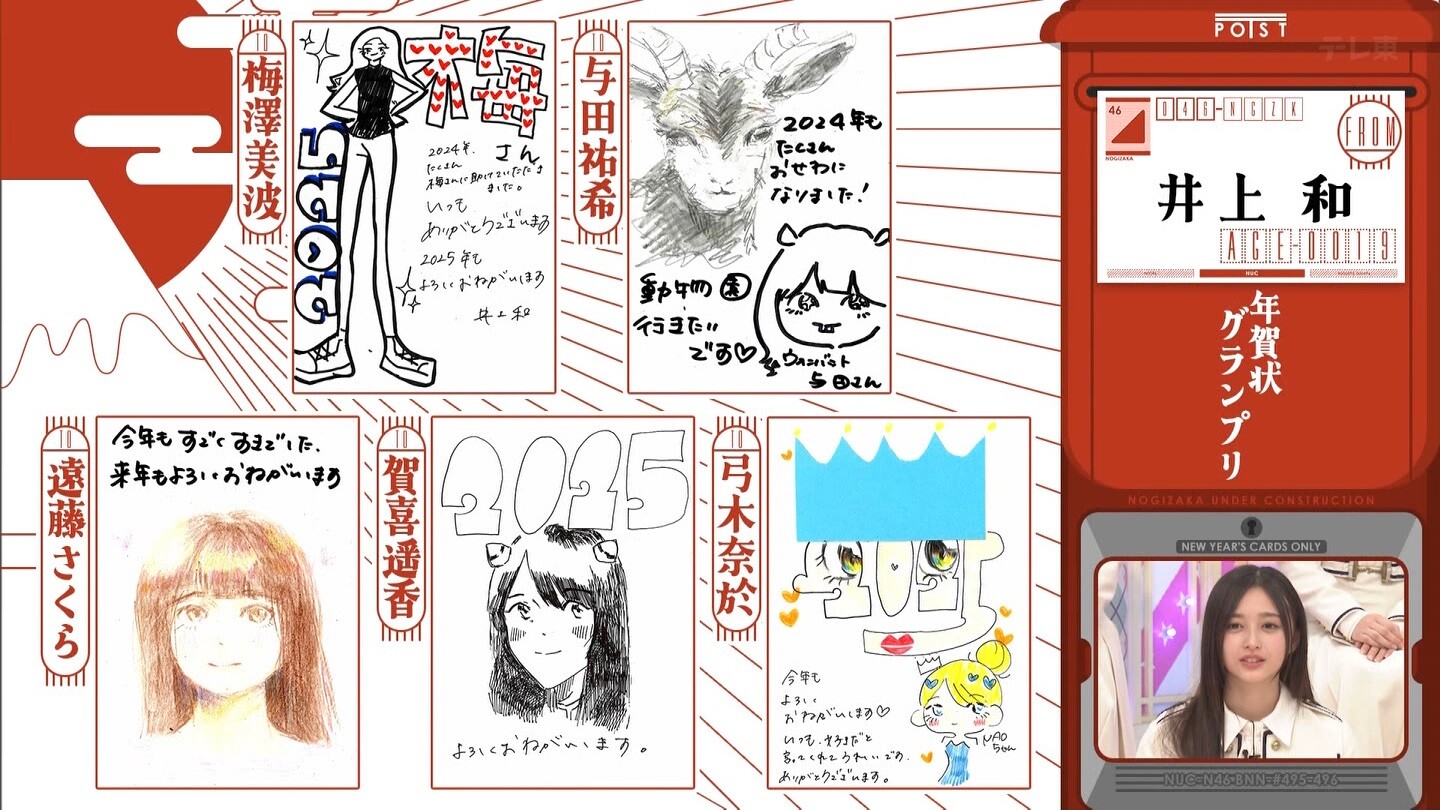 TO
梅澤美波
梅
さん
2025
2024年、
たくさん
梅さんに助けていただき
ました。
いつも
ありがとうございます
2025年も
よろしくおねがいします
井上和
TO
与田祐希
2024年も
たくさん
おせわに
なりました!
動物園
行きたい
です♡
ウォンバット
与田さん
TO
遠藤さくら
今年もすごくすきでした、
来年もよろしくおねがいします
TO
賀喜遥香
2025
よろしくおねがいします。
TO
弓木奈於
2025
今年も
よろしく
おねがいします♡
いつも、好きだと
言ってくれてうれしいです。
ありがとうございます。
NAO
さん
POST
テレ東
46
046-NGZK
NOGIZAKA
FROM
井上 和
AGE-0019
NUC
年賀状
グランプリ
NOGIZAKA UNDER CONSTRUCTION
NEW YEAR'S CARDS ONLY
NUC-N46-BNN-#495-496